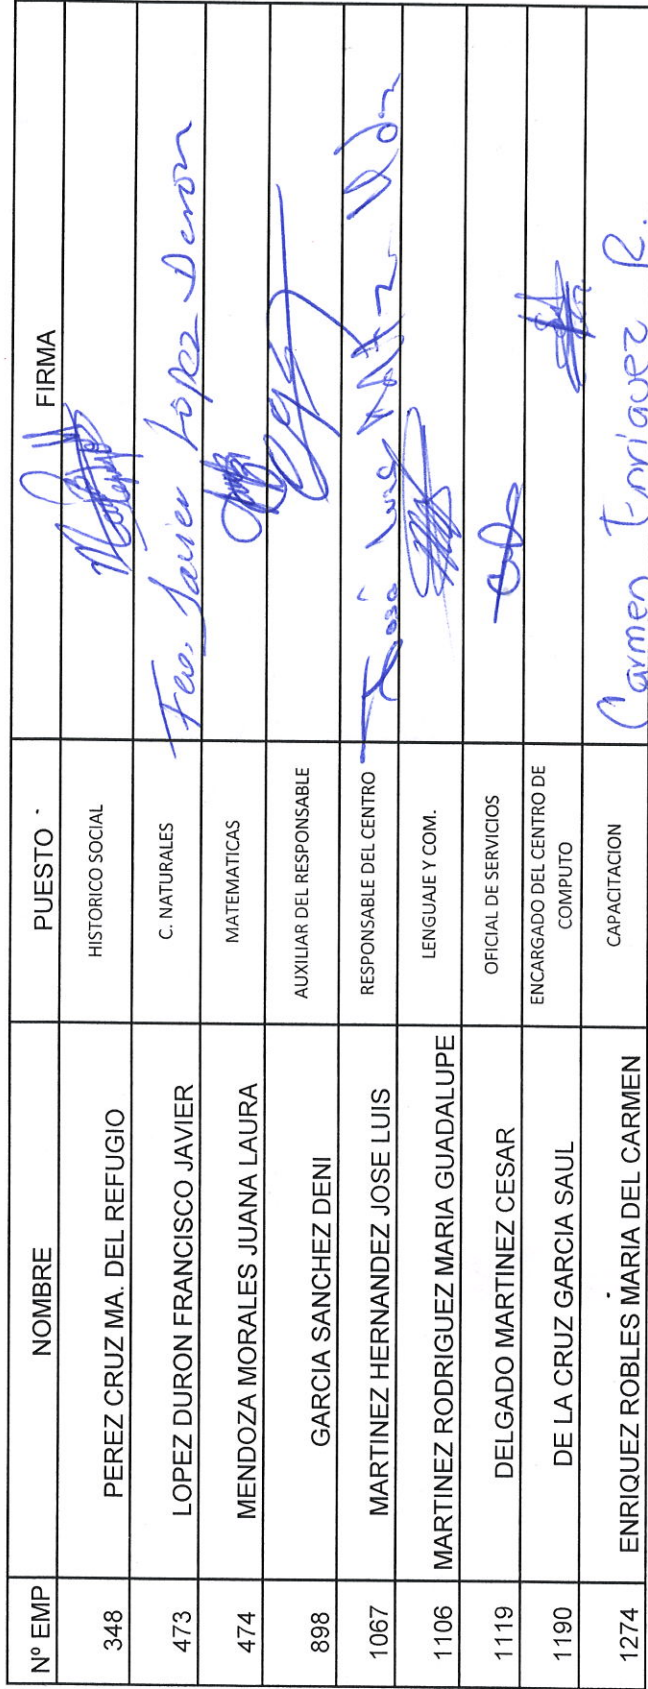 Nº EMP NOMBRE PUESTO FIRMA
348 PEREZ CRUZ MA. DEL REFUGIO HISTORICO SOCIAL
473 LOPEZ DURON FRANCISCO JAVIER C. NATURALES Fco. Javier Lopez Duron
474 MENDOZA MORALES JUANA LAURA MATEMATICAS
898 GARCIA SANCHEZ DENI AUXILIAR DEL RESPONSABLE
1067 MARTINEZ HERNANDEZ JOSE LUIS RESPONSABLE DEL CENTRO José Luis
1106 MARTINEZ RODRIGUEZ MARIA GUADALUPE LENGUAJE Y COM.
1119 DELGADO MARTINEZ CESAR OFICIAL DE SERVICIOS
1190 DE LA CRUZ GARCIA SAUL ENCARGADO DEL CENTRO DE
COMPUTO
1274 ENRIQUEZ ROBLES MARIA DEL CARMEN CAPACITACION Carmen Enriquez R.